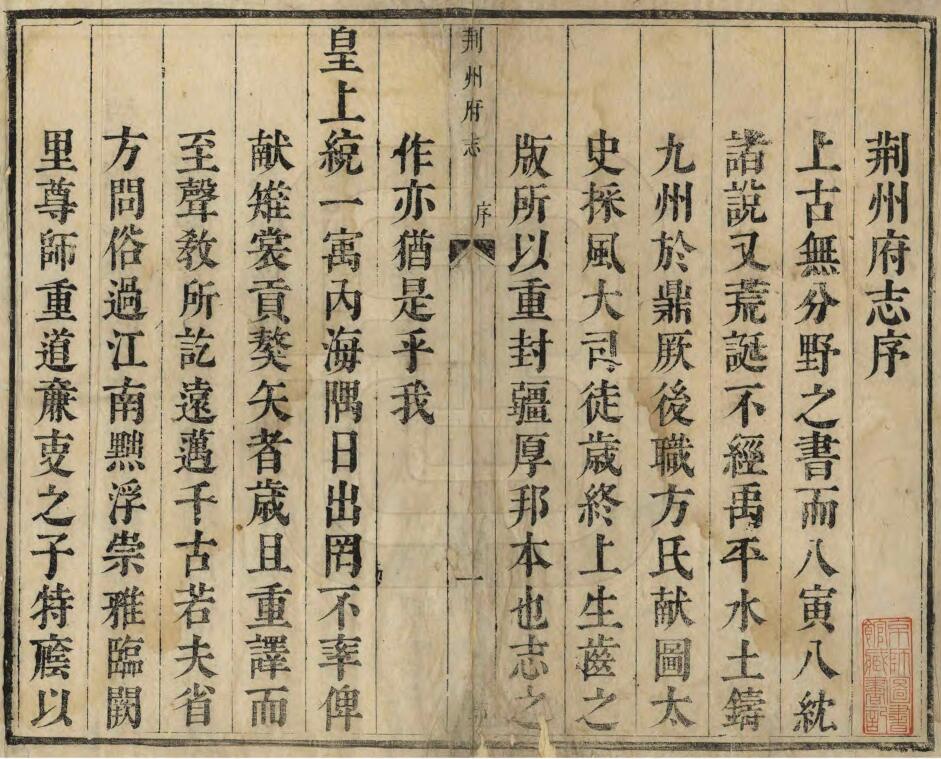 荆州府志序
上古無分野之書而八寅八紘
諸說又荒誕不經禹平水土鑄
九州於鼎厥後職方氏献圖太
史採風大司徒歲終上生齒之
版所以重封疆厚邦本也志之
作亦猶是乎我
荆州府志 序 一
皇上統一寓內海隅日出罔不率俾
献雉裳貢獒矢者歲且重譯而
至聲敎所訖遠邁千古若夫省
方問俗過江南黜浮崇雅臨闕
里尊師重道亷吏之子特廕以